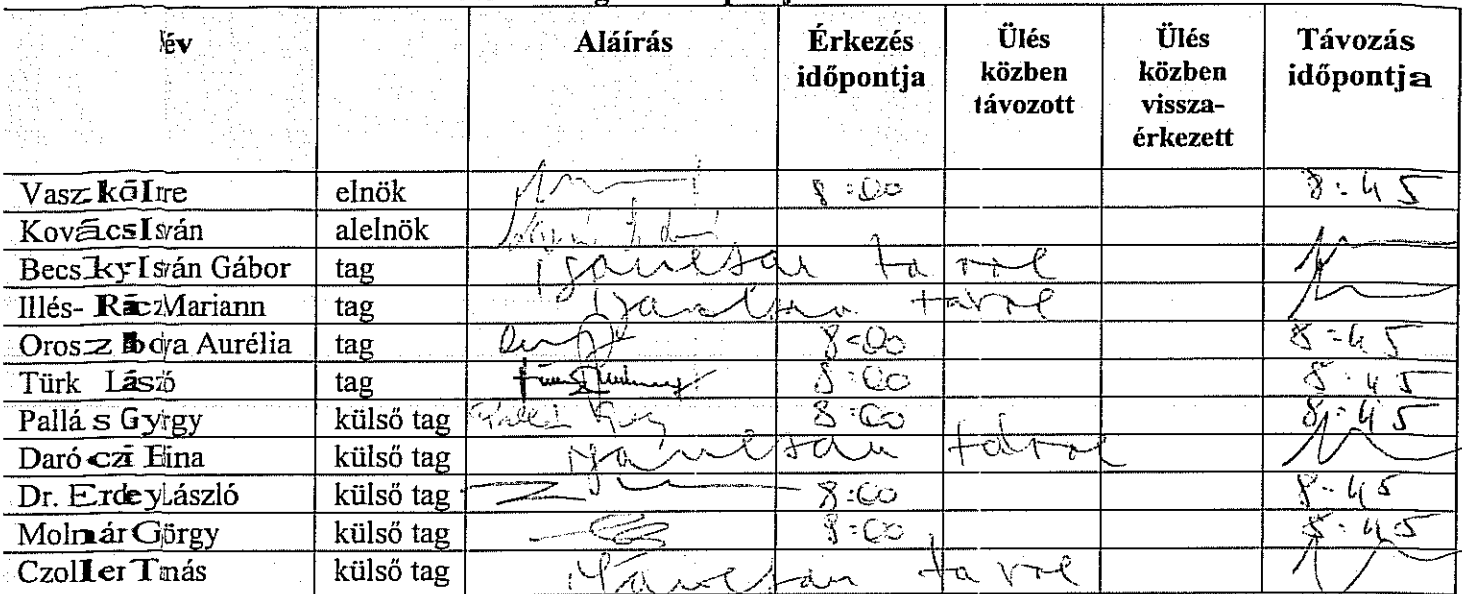 Név Aláírás Érkezés időpontja Ülés közben távozott Ülés közben vissza-érkezett Távozás időpontja
Vaszkó Imre elnök 8:00 8:45
Kovács István alelnök
Becsky István Gábor tag igazoltan távol
Illés-Rácz Mariann tag igazoltan távol
Orosz Ibolya Aurélia tag 8:00 8:45
Türk László tag 8:00 8:45
Pallás György külső tag 8:00 8:45
Daróczi Edina külső tag igazoltan távol
Dr. Erdey László külső tag 8:00 8:45
Molnár György külső tag 8:00 8:45
Czoller Tamás külső tag igazoltan távol